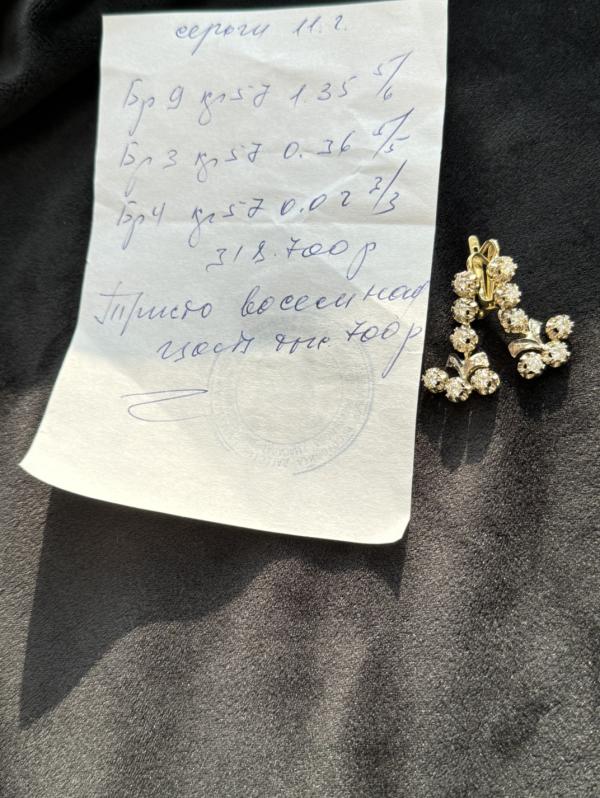 серьги 11. г.
Бр 9 кр57 1.35 5/6
Бр 3 кр57 0.36 5/5
Бр 4 кр57 0.02 2/3
318.700 р
Тристо восемнад
цать тыс 700 р